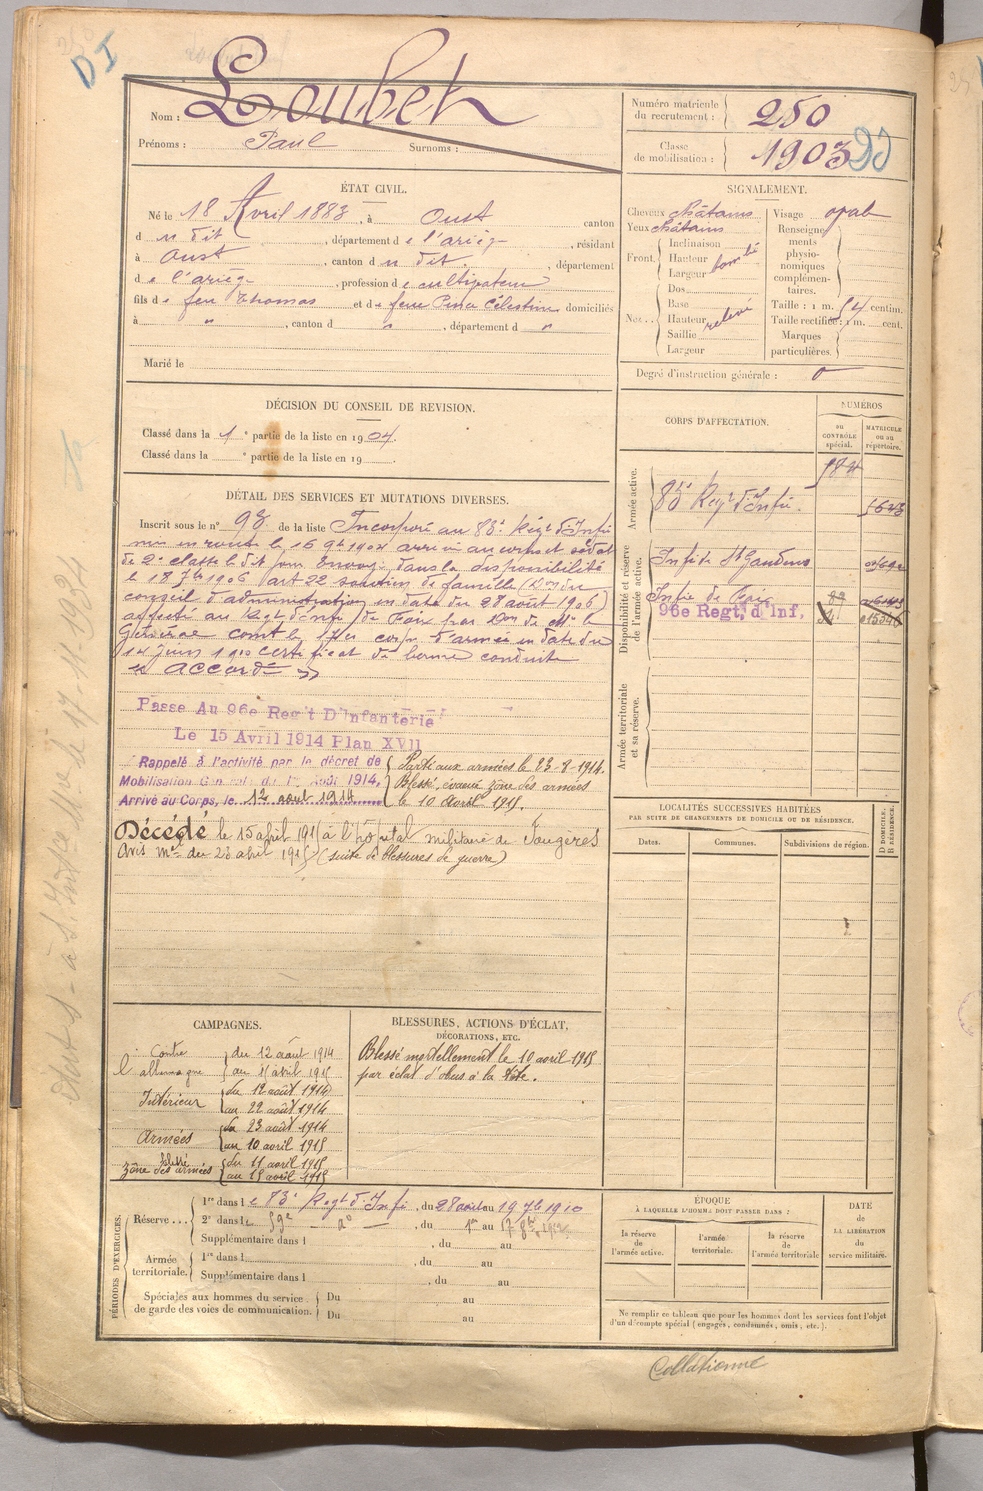 DI
Nom : Loubet
Prénoms : Paul Surnoms :
Numéro matricule du recrutement : 250
Classe de mobilisation : 1903
ÉTAT CIVIL.
Né le 18 Avril 1883, à Oust canton
d u dit, département de l'ariège, résidant
à Oust, canton du dit, département
de l'ariège, profession de cultivateur
fils de feu Thomas et de feue Célestine domiciliés
à ", canton d ", département d "
Marié le
SIGNALEMENT.
Cheveux châtains Visage oval
Yeux châtains
Front Inclinaison Hauteur Largeur bombé
Nez Dos Base Hauteur Saillie Largeur relevé
Renseignements physionomiques complémentaires.
Taille : 1 m. 54 centim.
Taille rectifiée : 1 m. cent.
Marques particulières.
Degré d'instruction générale : 0
DÉCISION DU CONSEIL DE REVISION.
Classé dans la 1e partie de la liste en 1904.
Classé dans la e partie de la liste en 19 .
CORPS D'AFFECTATION.
NUMÉROS
au CONTRÔLE spécial.
MATRICULE ou au répertoire.
Armée active.
83e Régt d'Infie.
Disponibilité et réserve de l'armée active.
Infie de St Gaudens
Infie de Foix
96e Regt, d'Inf,
Armée territoriale et sa réserve.
DÉTAIL DES SERVICES ET MUTATIONS DIVERSES.
Inscrit sous le n° 93 de la liste Incorporé au 83e Régt d'Infie
mis en route le 16 9bre 1904 arrivé au corps et soldat
de 2e classe le dit jour. Envoyé dans la disponibilité
le 18 7bre 1906 art 22 soutien de famille (Don du
conseil d'administration en date du 28 août 1906)
affecté au Régt d'Infie de Foix par Don de Mr le
Général comt le 17e corps d'armée en date du
14 juin 1910 Certificat de bonne conduite
"Accordé"
Passe Au 96e Reg't D'Infanterie
Le 15 Avril 1914 Plan XVII
Rappelé à l'activité par le décret de
Mobilisation Générale du 1er Août 1914,
Arrivé au Corps, le 12 août 1914
Parti aux armées le 23-8-1914.
Blessé, évacué zône des armées
le 10 avril 1915.
Décédé le 15 avril 1915 à l'hôpital militaire de Fougères
Avis Mel du 23 avril 1915 (suite de blessures de guerre)
LOCALITÉS SUCCESSIVES HABITÉES
PAR SUITE DE CHANGEMENTS DE DOMICILE OU DE RÉSIDENCE.
Dates. Communes. Subdivisions de région. D DOMICILE. R RÉSIDENCE.
CAMPAGNES.
Contre l'allemagne du 12 août 1914 au 15 avril 1915
Intérieur du 12 août 1914 au 22 août 1914
Armées du 23 août 1914 au 10 avril 1915
blessé zône des armées du 11 avril 1915 au 15 avril 1915
BLESSURES, ACTIONS D'ÉCLAT,
DÉCORATIONS, ETC.
Blessé mortellement le 10 avril 1915
par éclat d'obus à la tête.
PÉRIODES D'EXERCICES.
Réserve... 1re dans le 83e Régt d'Infie, du 28 août au 19 7bre 1910
2e dans le 59e — do —, du 1er au 17 8bre 1912
Supplémentaire dans l , du au
Armée territoriale. 1re dans l , du au
Supplémentaire dans l , du au
Spéciales aux hommes du service de garde des voies de communication. Du au
Du au
ÉPOQUE
À LAQUELLE L'HOMME DOIT PASSER DANS :
la réserve de l'armée active.
l'armée territoriale.
la réserve de l'armée territoriale
DATE DE LA LIBÉRATION du service militaire.
Ne remplir ce tableau que pour les hommes dont les services font l'objet
d'un décompte spécial (engagés, condamnés, omis, etc.).
Collationné